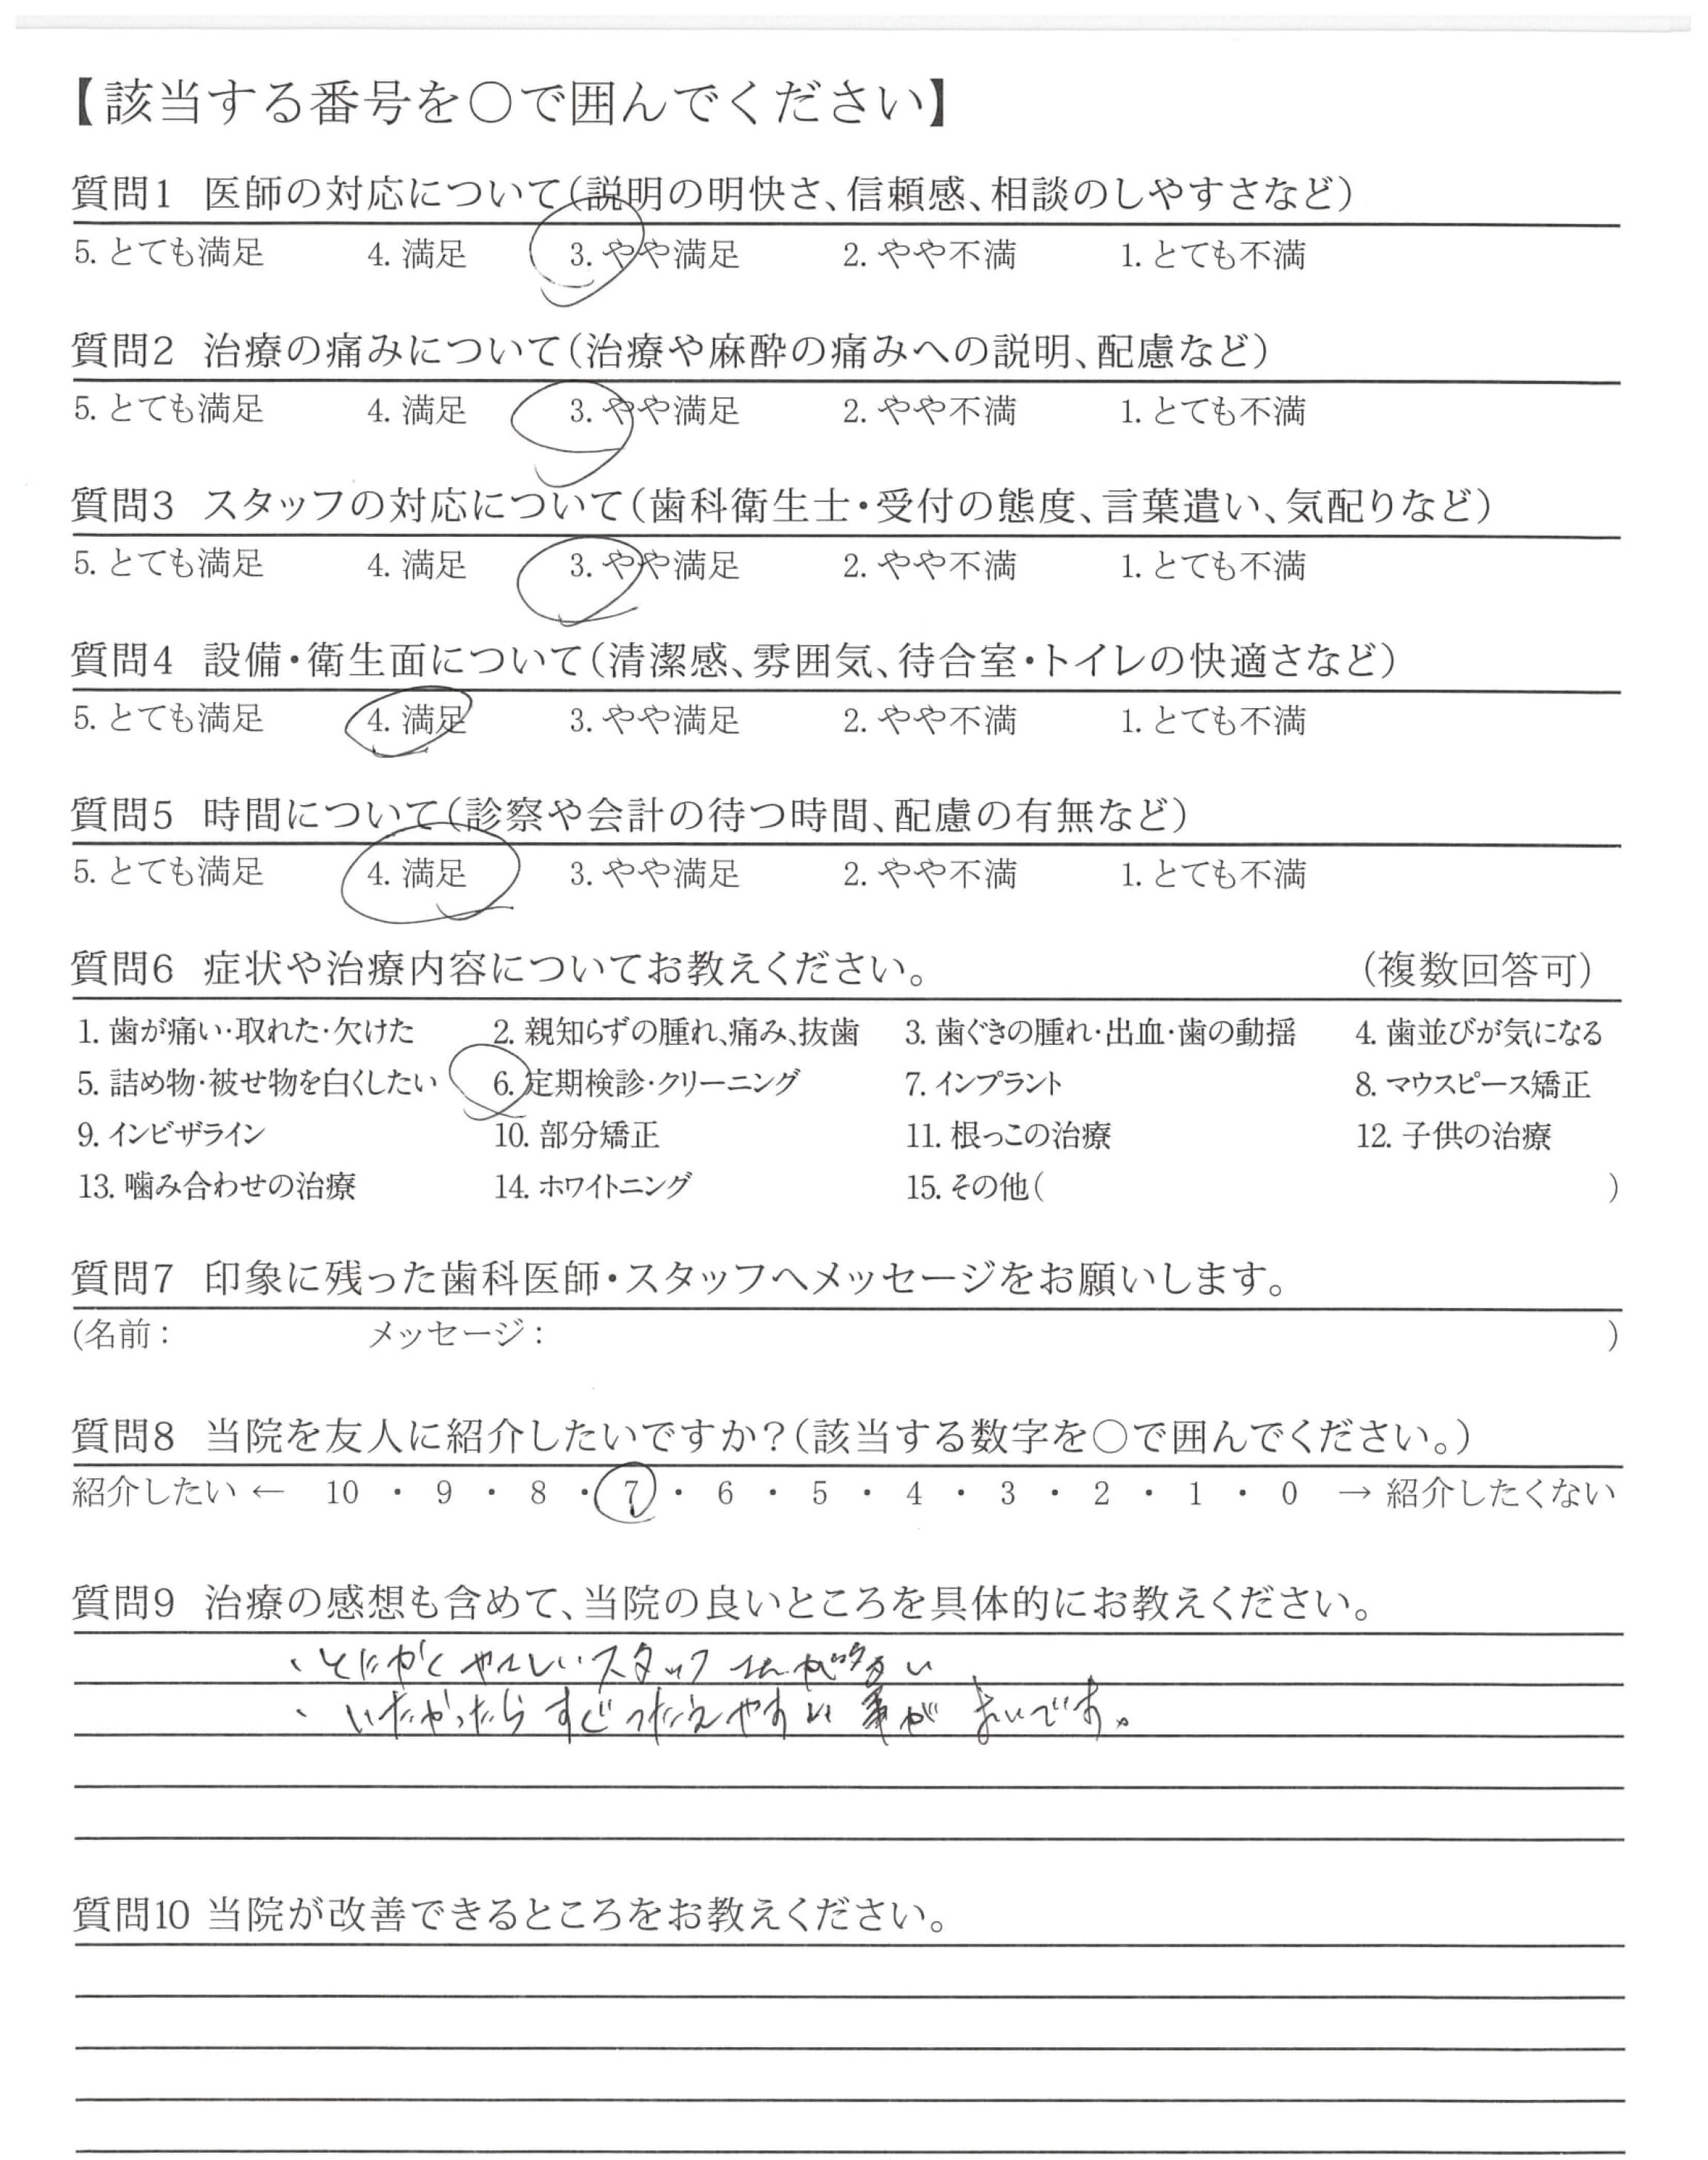 【該当する番号を○で囲んでください】
質問1 医師の対応について(説明の明快さ、信頼感、相談のしやすさなど)
5. とても満足 4. 満足 3. やや満足 2. やや不満 1. とても不満
質問2 治療の痛みについて(治療や麻酔の痛みへの説明、配慮など)
5. とても満足 4. 満足 3. やや満足 2. やや不満 1. とても不満
質問3 スタッフの対応について(歯科衛生士・受付の態度、言葉遣い、気配りなど)
5. とても満足 4. 満足 3. やや満足 2. やや不満 1. とても不満
質問4 設備・衛生面について(清潔感、雰囲気、待合室・トイレの快適さなど)
5. とても満足 4. 満足 3. やや満足 2. やや不満 1. とても不満
質問5 時間について(診察や会計の待つ時間、配慮の有無など)
5. とても満足 4. 満足 3. やや満足 2. やや不満 1. とても不満
質問6 症状や治療内容についてお教えください。 (複数回答可)
1. 歯が痛い・取れた・欠けた 2. 親知らずの腫れ、痛み、抜歯 3. 歯ぐきの腫れ・出血・歯の動揺 4. 歯並びが気になる
5. 詰め物・被せ物を白くしたい 6. 定期検診・クリーニング 7. インプラント 8. マウスピース矯正
9. インビザライン 10. 部分矯正 11. 根っこの治療 12. 子供の治療
13. 噛み合わせの治療 14. ホワイトニング 15. その他( )
質問7 印象に残った歯科医師・スタッフへメッセージをお願いします。
(名前: メッセージ: )
質問8 当院を友人に紹介したいですか?(該当する数字を○で囲んでください。)
紹介したい ← 10 ・ 9 ・ 8 ・ 7 ・ 6 ・ 5 ・ 4 ・ 3 ・ 2 ・ 1 ・ 0 → 紹介したくない
質問9 治療の感想も含めて、当院の良いところを具体的にお教えください。
、とにかくやさしいスタッフさんが多い
、いたかったらすぐつたえやすい事がよいです。
質問10 当院が改善できるところをお教えください。